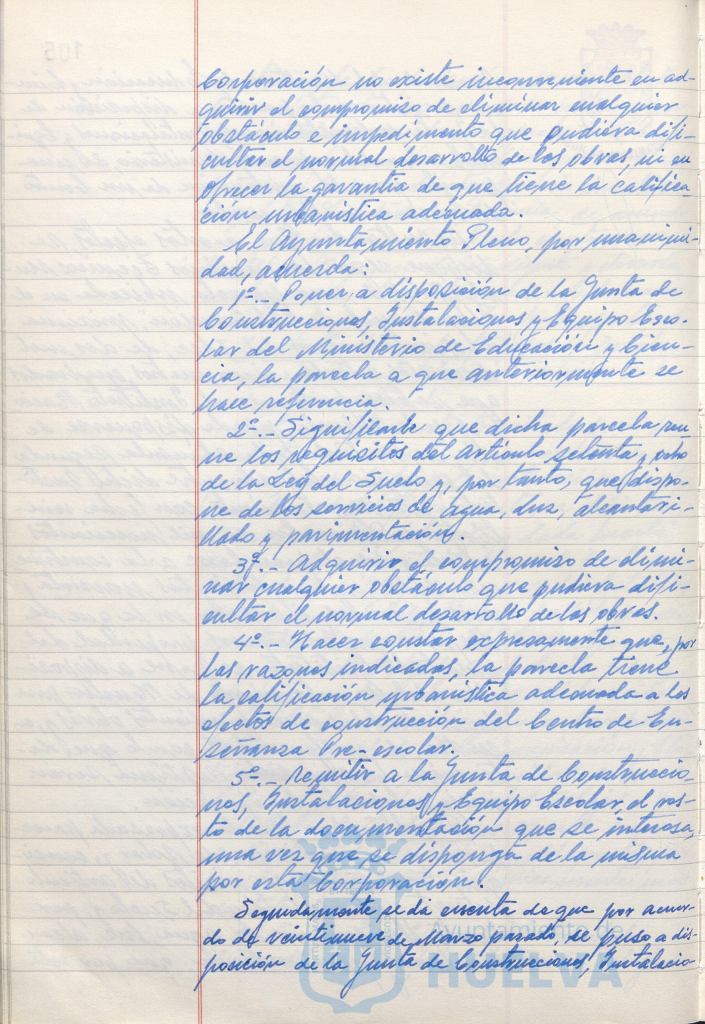 Corporación no existe inconveniente en ad-
quirir el compromiso de eliminar cualquier
obstáculo e impedimento que pudiera difi-
cultar el normal desarrollo de las obras, ni en
ofrecer la garantía de que tiene la califica-
ción urbanística adecuada.
El Ayuntamiento Pleno, por unanimi-
dad, acuerda:
1º.- Poner a disposición de la Junta de
Construcciones, Instalaciones y Equipo Esco-
lar del Ministerio de Educación y Cien-
cia, la parcela a que anteriormente se
hace referencia.
2º.- Significarle que dicha parcela reu-
ne los requisitos del artículo setenta y ocho
de la Ley del Suelo y, por tanto, que dispo-
ne de los servicios de agua, luz, alcantari-
llado y pavimentación.
3º.- Adquirir el compromiso de elimi-
nar cualquier obstáculo que pudiera difi-
cultar el normal desarrollo de las obras.
4º.- Hacer constar expresamente que, por
las razones indicadas, la parcela tiene
la calificación urbanística adecuada a los
efectos de construcción del Centro de En-
señanza Pre-escolar.
5º.- Remitir a la Junta de Construccio-
nes, Instalaciones y Equipo Escolar, el res-
to de la documentación que se interesa,
una vez que se disponga de la misma
por esta Corporación.
Seguidamente se da cuenta de que por acuer-
do de veintinueve de Marzo pasado, se puso a dis-
posición de la Junta de Construcciones, Instalacio-
Ayuntamiento de
HUELVA
105